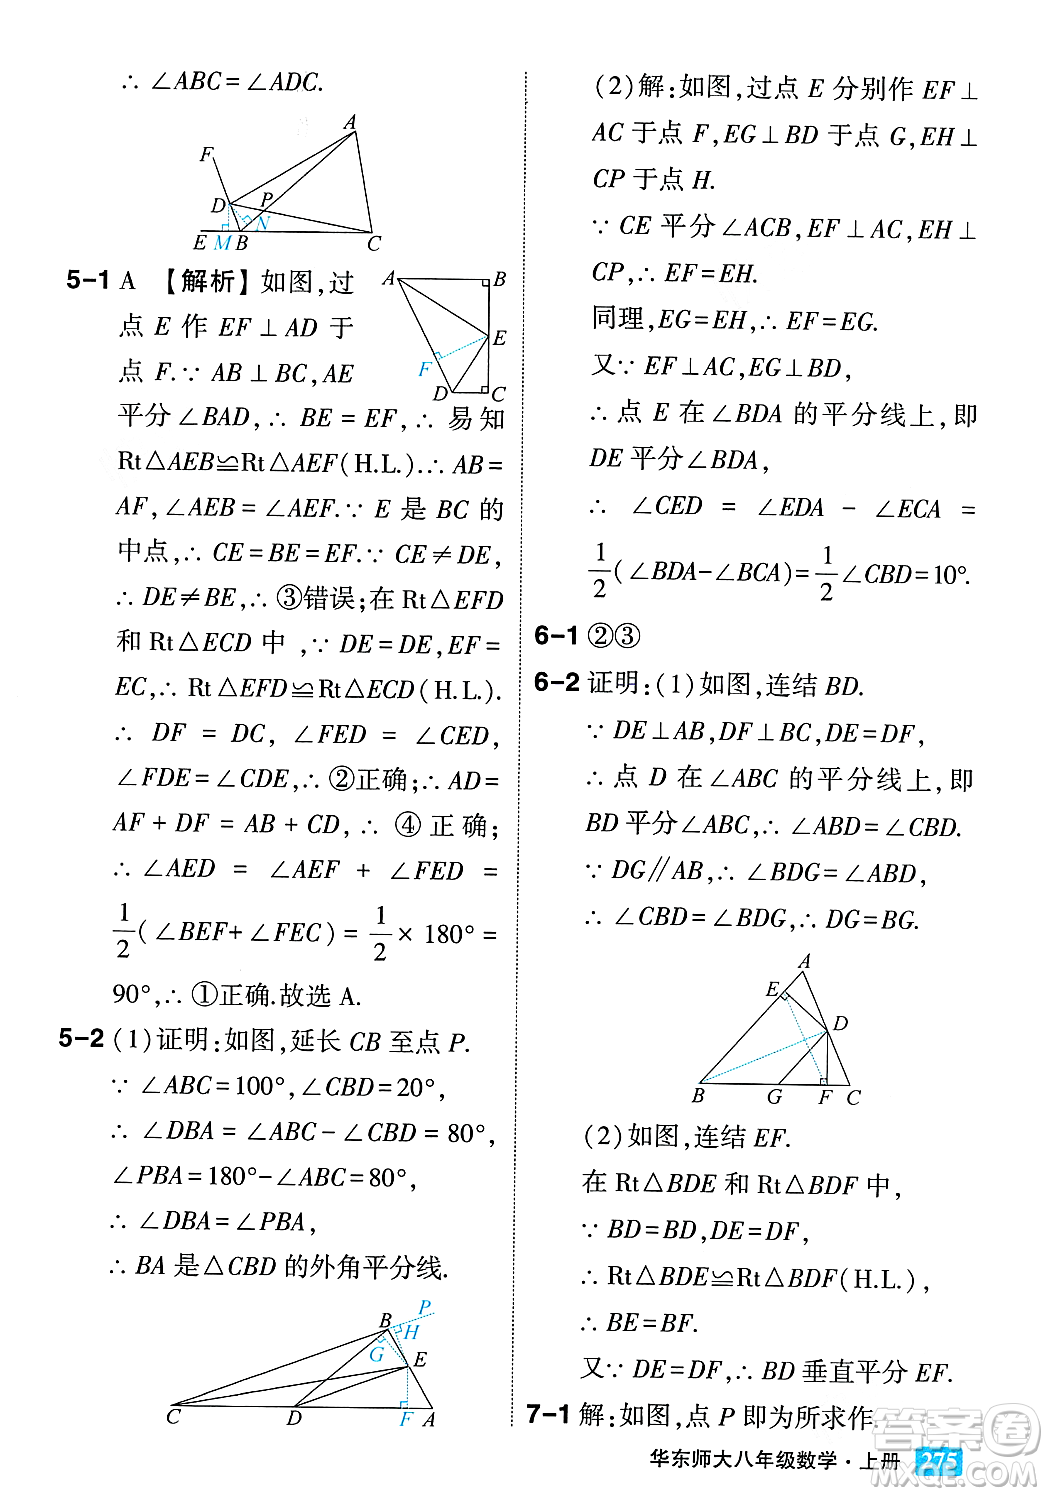 ∴ ∠ABC=∠ADC.
A
F
D
P
N
E M B
C
5-1 A 【解析】如图,过
点 E 作 EF⊥AD 于
点 F.∵ AB⊥BC,AE
平分∠BAD,∴ BE=EF,∴ 易知
Rt△AEB≌Rt△AEF(H.L.).∴ AB=
AF,∠AEB=∠AEF.∵ E 是 BC 的
中点,∴ CE=BE=EF.∵ CE≠DE,
∴ DE≠BE,∴ ③错误;在 Rt△EFD
和 Rt△ECD 中 ,∵ DE=DE,EF=
EC,∴ Rt△EFD≌Rt△ECD(H.L.).
∴ DF = DC, ∠FED = ∠CED,
∠FDE=∠CDE,∴ ②正确;∴ AD=
AF+DF=AB+CD,∴ ④正确;
∴ ∠AED = ∠AEF + ∠FED =
1/2(∠BEF+∠FEC)=1/2×180°=
90°,∴ ①正确.故选 A.
A
B
E
F
D
C
5-2 (1)证明:如图,延长 CB 至点 P.
∵ ∠ABC=100°,∠CBD=20°,
∴ ∠DBA=∠ABC-∠CBD=80°,
∠PBA=180°-∠ABC=80°,
∴ ∠DBA=∠PBA,
∴ BA 是△CBD 的外角平分线.
P
B
H
G
E
C
D
F
A
(2)解:如图,过点 E 分别作 EF⊥
AC 于点 F,EG⊥BD 于点 G,EH⊥
CP 于点 H.
∵ CE 平分∠ACB,EF⊥AC,EH⊥
CP,∴ EF=EH.
同理,EG=EH,∴ EF=EG.
又∵ EF⊥AC,EG⊥BD,
∴ 点 E 在∠BDA 的平分线上,即
DE 平分∠BDA,
∴ ∠CED = ∠EDA - ∠ECA =
1/2(∠BDA-∠BCA)=1/2∠CBD=10°.
6-1 ②③
6-2 证明:(1)如图,连结 BD.
∵ DE⊥AB,DF⊥BC,DE=DF,
∴ 点 D 在∠ABC 的平分线上,即
BD 平分∠ABC,∴ ∠ABD=∠CBD.
∵ DG∥AB,∴ ∠BDG=∠ABD,
∴ ∠CBD=∠BDG,∴ DG=BG.
A
E
D
B
G
F
C
(2)如图,连结 EF.
在 Rt△BDE 和 Rt△BDF 中,
∵ BD=BD,DE=DF,
∴ Rt△BDE≌Rt△BDF(H.L.),
∴ BE=BF.
又∵ DE=DF,∴ BD 垂直平分 EF.
7-1 解:如图,点 P 即为所求作.
华东师大八年级数学·上册 275
答案圈
MXQE.COM